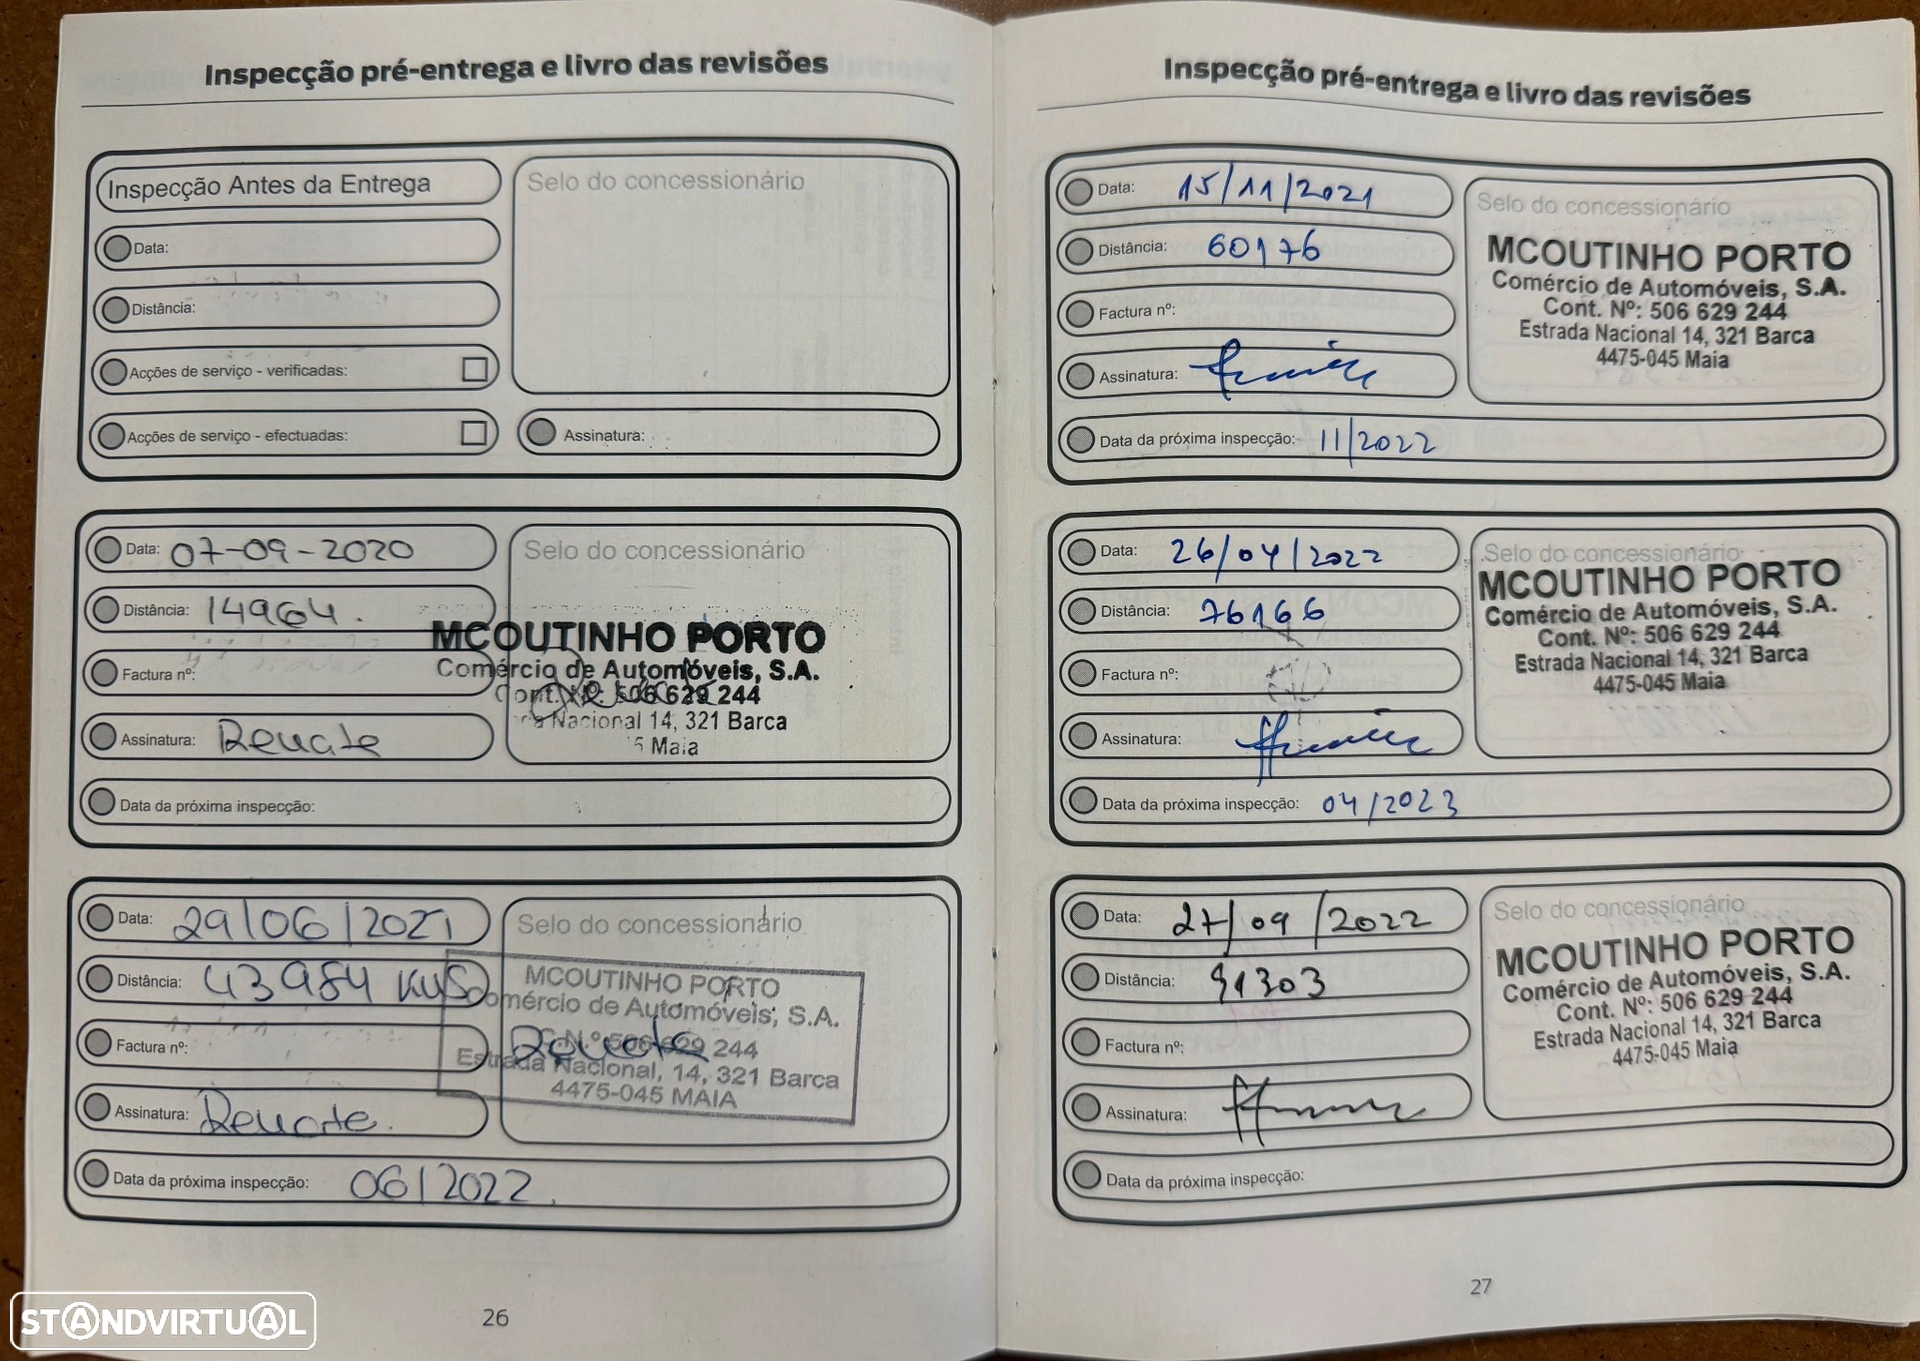 Inspecção pré-entrega e livro das revisões
Inspecção Antes da Entrega
Selo do concessionário
Data:
Distância:
Acções de serviço - verificadas:
Acções de serviço - efectuadas:
Assinatura:
Data: 07-09-2020
Selo do concessionário
Distância: 14964.
MCOUTINHO PORTO
Comércio de Automóveis, S.A.
Cont. Nº: 506 629 244
Nacional 14, 321 Barca
5 Maia
Factura nº:
Assinatura: Renate
Data da próxima inspecção:
Data: 29/06/2021
Selo do concessionário
Distância: 43984 KMS
MCOUTINHO PORTO
Comércio de Automóveis, S.A.
C.N.º 506 629 244
Estrada Nacional, 14, 321 Barca
4475-045 MAIA
Renate
Factura nº:
Assinatura: Renate.
Data da próxima inspecção: 06/2022.
26
Inspecção pré-entrega e livro das revisões
Data: 15/11/2021
Selo do concessionário
Distância: 60176
MCOUTINHO PORTO
Comércio de Automóveis, S.A.
Cont. Nº: 506 629 244
Estrada Nacional 14, 321 Barca
4475-045 Maia
Factura nº:
Assinatura:
Data da próxima inspecção: 11/2022
Data: 26/04/2022
Selo do concessionário
Distância: 76166
MCOUTINHO PORTO
Comércio de Automóveis, S.A.
Cont. Nº: 506 629 244
Estrada Nacional 14, 321 Barca
4475-045 Maia
Factura nº:
Assinatura:
Data da próxima inspecção: 04/2023
Data: 27/09/2022
Selo do concessionário
Distância: 91303
MCOUTINHO PORTO
Comércio de Automóveis, S.A.
Cont. Nº: 506 629 244
Estrada Nacional 14, 321 Barca
4475-045 Maia
Factura nº:
Assinatura:
Data da próxima inspecção:
27
STANDVIRTUAL